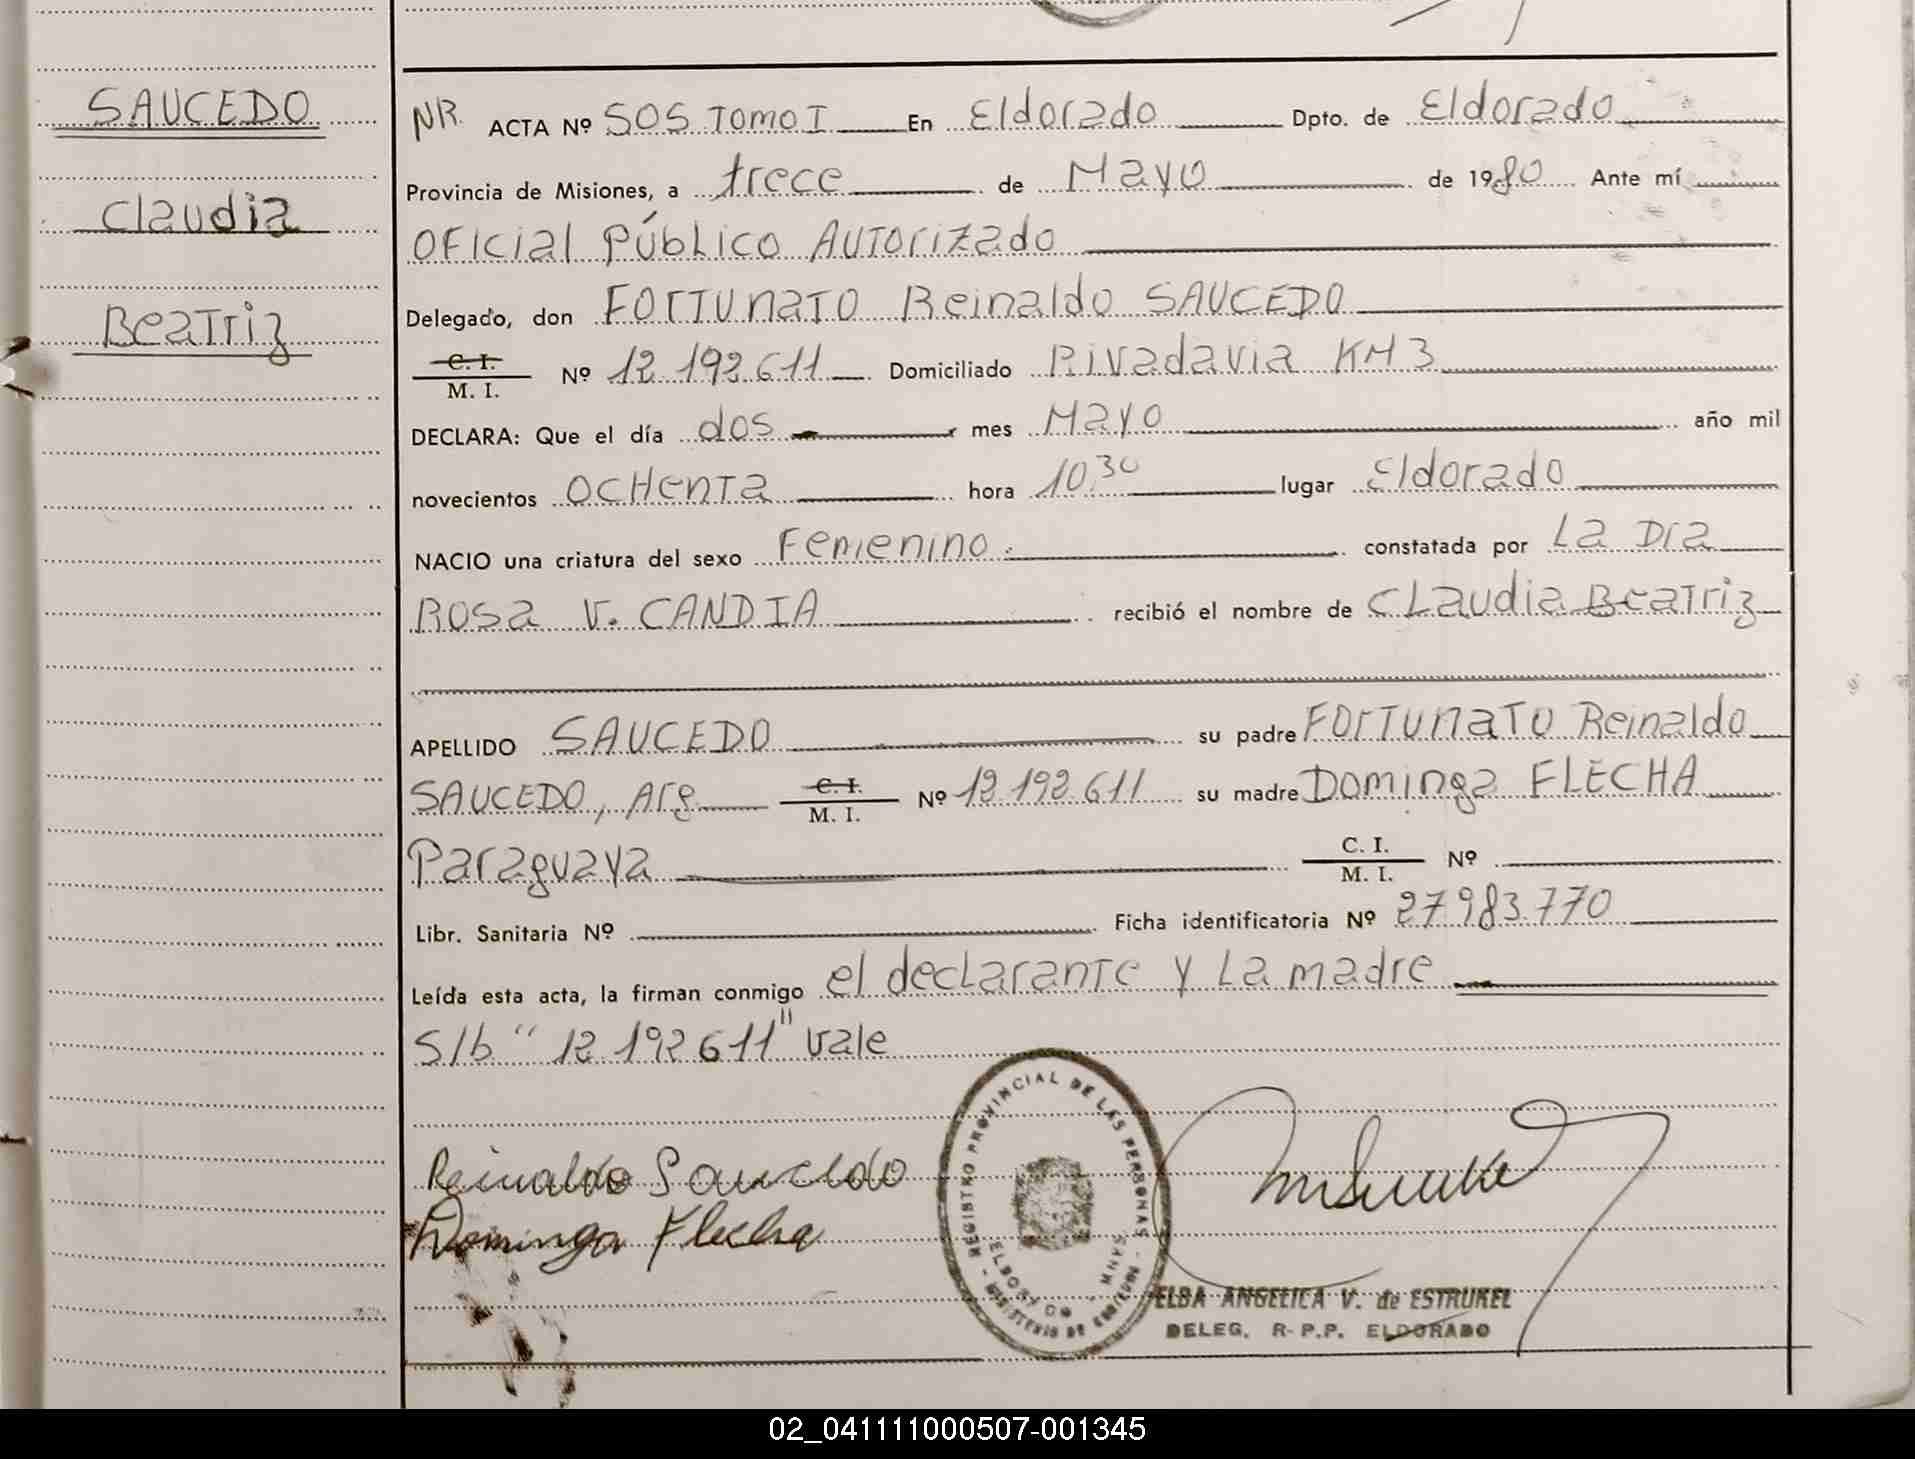 SAUCEDO
Claudia
Beatriz
NR. ACTA Nº 505 Tomo I En Eldorado Dpto. de Eldorado
Provincia de Misiones, a trece de Mayo de 1980 Ante mí
Oficial Público Autorizado
Delegado, don Fortunato Reinaldo SAUCEDO
C. I.
M. I. Nº 12.192.611 Domiciliado Rivadavia KM 3
DECLARA: Que el día dos mes Mayo año mil
novecientos ochenta hora 10,30 lugar Eldorado
NACIO una criatura del sexo Femenino. constatada por La Dra
Rosa V. CANDIA recibió el nombre de Claudia Beatriz
APELLIDO SAUCEDO su padre Fortunato Reinaldo
SAUCEDO, Arg C. I. M. I. Nº 12.192.611 su madre Dominga FLECHA
Paraguaya C. I. M. I. Nº
Libr. Sanitaria Nº Ficha identificatoria Nº 27.983.770
Leída esta acta, la firman conmigo el declarante y la madre
S/b "12.192.611" vale
Reinaldo Saucedo
Dominga Flecha
REGISTRO PROVINCIAL DE LAS PERSONAS - MINISTERIO DE GOBIERNO -
ELDORADO MNES.
ELBA ANGELICA V. de ESTRUKEL
DELEG. R.P.P. ELDORADO
02_041111000507-001345